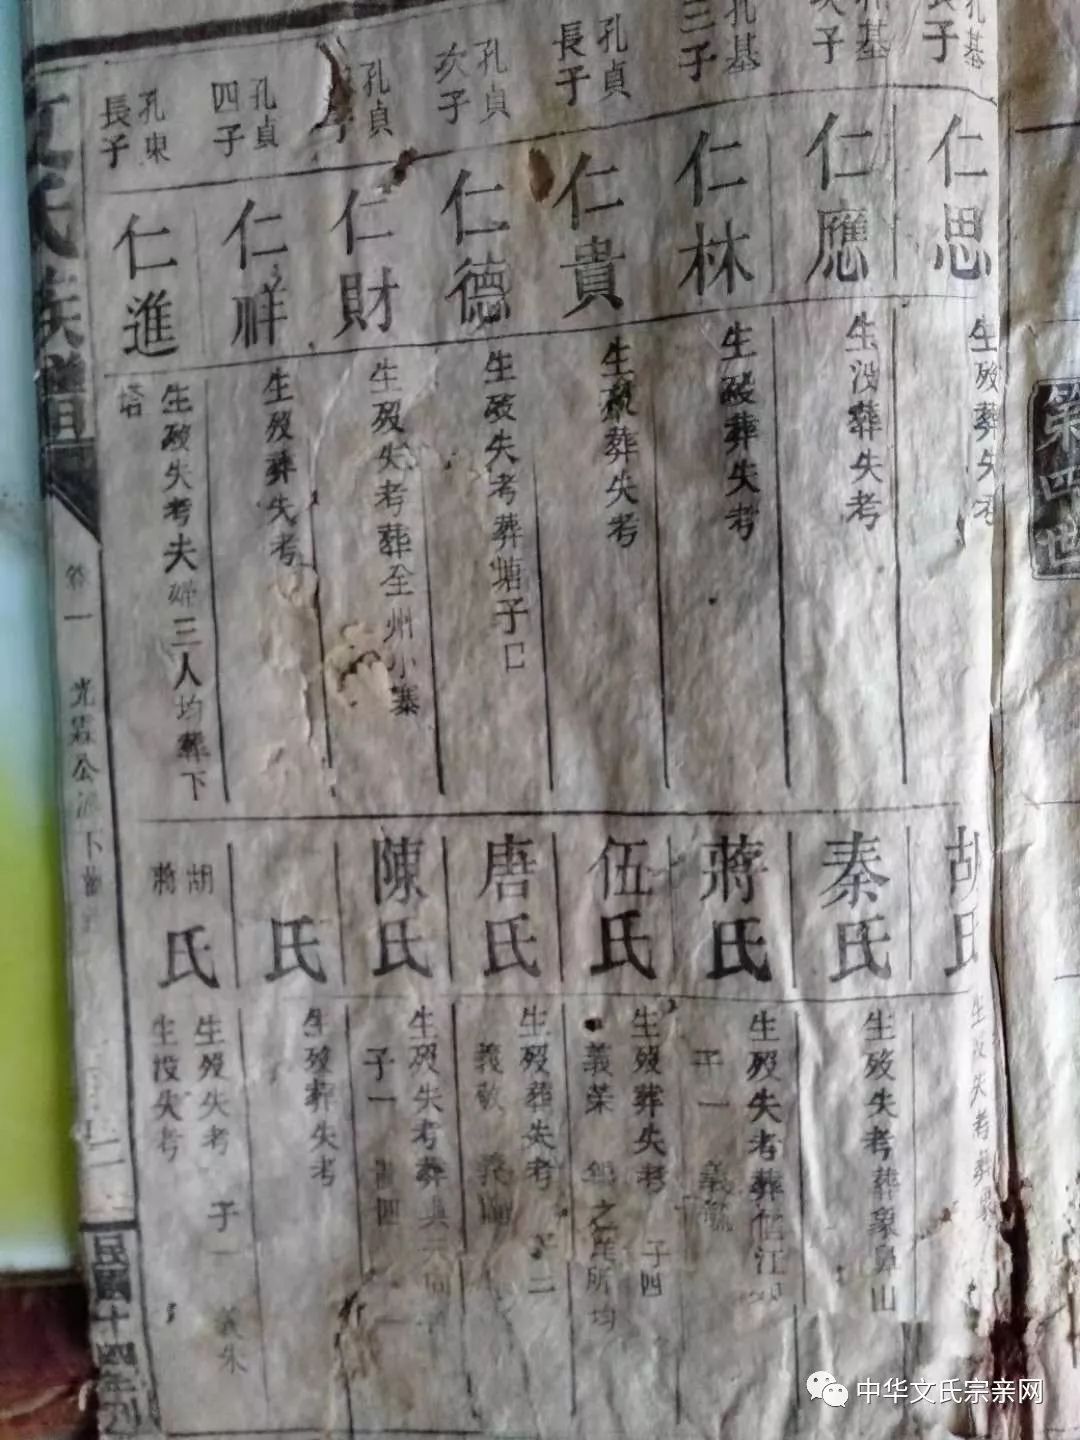 第四世
孔基
長子
仁思
生歿葬失考
胡氏
孔基
次子
仁應
生没葬失考
秦氏
生歿失考葬象鼻山
孔基
三子
仁林
生歿葬失考
蔣氏
生歿失考葬
子一
孔貞
長子
仁貴
生歿葬失考
伍氏
生歿葬失考 子四
義荣
孔貞
次子
仁德
生歿失考葬塘子口
唐氏
生歿葬失考 子二
義敬
孔貞
子
仁財
生歿失考葬全州小寨
陳氏
生歿失考葬
子一
孔貞
四子
仁祥
生歿葬失考
氏
生歿葬失考
孔東
長子
仁進
生歿失考夫婦三人均葬下
塔
胡
蔣
氏
生歿失考 子一
生没失考
文氏族譜
卷一
光霖公派下
二
民國十四年刊
中华文氏宗亲网